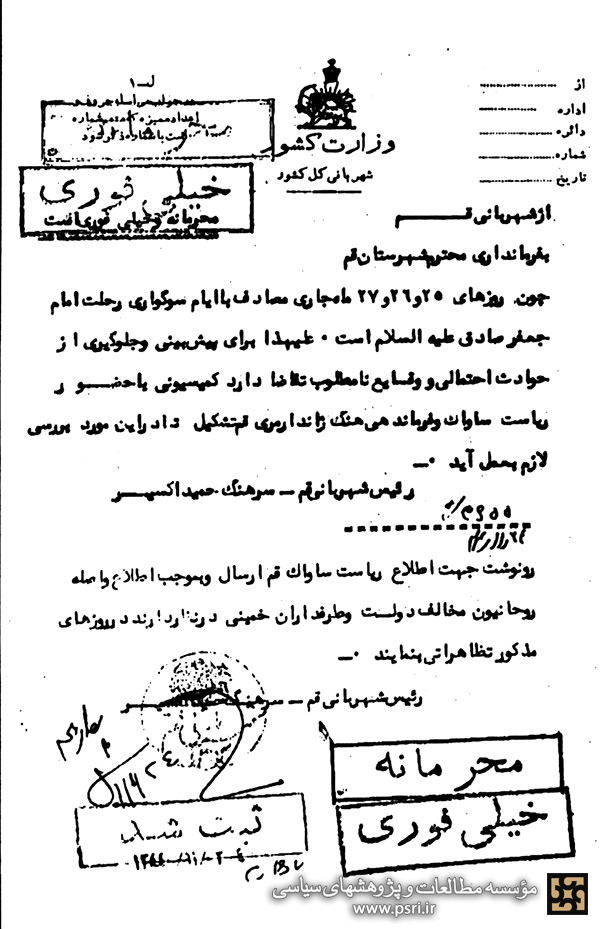 از
اداره
دائره
شماره
تاریخ
وزارت کشور
شهربانی کل کشور
خیلی فوری
محرمانه و خیلی فوری است
از شهربانی قــــم
بفرمانداری محترم شهرستان قم
چون روزهای ۲۵ و ۲۶ و ۲۷ ماه جاری مصادف با ایام سوگواری رحلت امام
جعفر صادق علیه السلام است ۰ علیهذا برای پیش بینی و جلوگیری از
حوادث احتمالی و وقایع نامطلوب تقاضا دارد کمیسیونی با حضـــور
ریاست ساواک و فرمانده هی هنگ ژاندارمری قم تشکیل تا در این مورد بررسی
لازم بعمل آید ۰ــ
رئیس شهربانی قم ــ سرهنگ حمید اکسیـــر
رونوشت جهت اطلاع ریاست ساواک قم ارسال و بموجب اطلاع واصله
روحانیون مخالف دولت و طرفداران خمینی در نظر دارند در روزهای
مذکور تظاهراتی بنمایند ۰ــ
رئیس شهربانی قم ــ سرهنگ
محرمانه
خیلی فوری
ثبت شد
مؤسسه مطالعات و پژوهشهای سیاسی
www.psri.ir